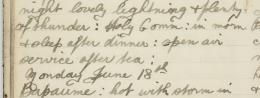 night lovely lightning & plenty
of thunder : Holy Comn : in morn
& sleep after dinner : open air
service after tea ;
Monday June 18th
Bapaume : hot with storm in